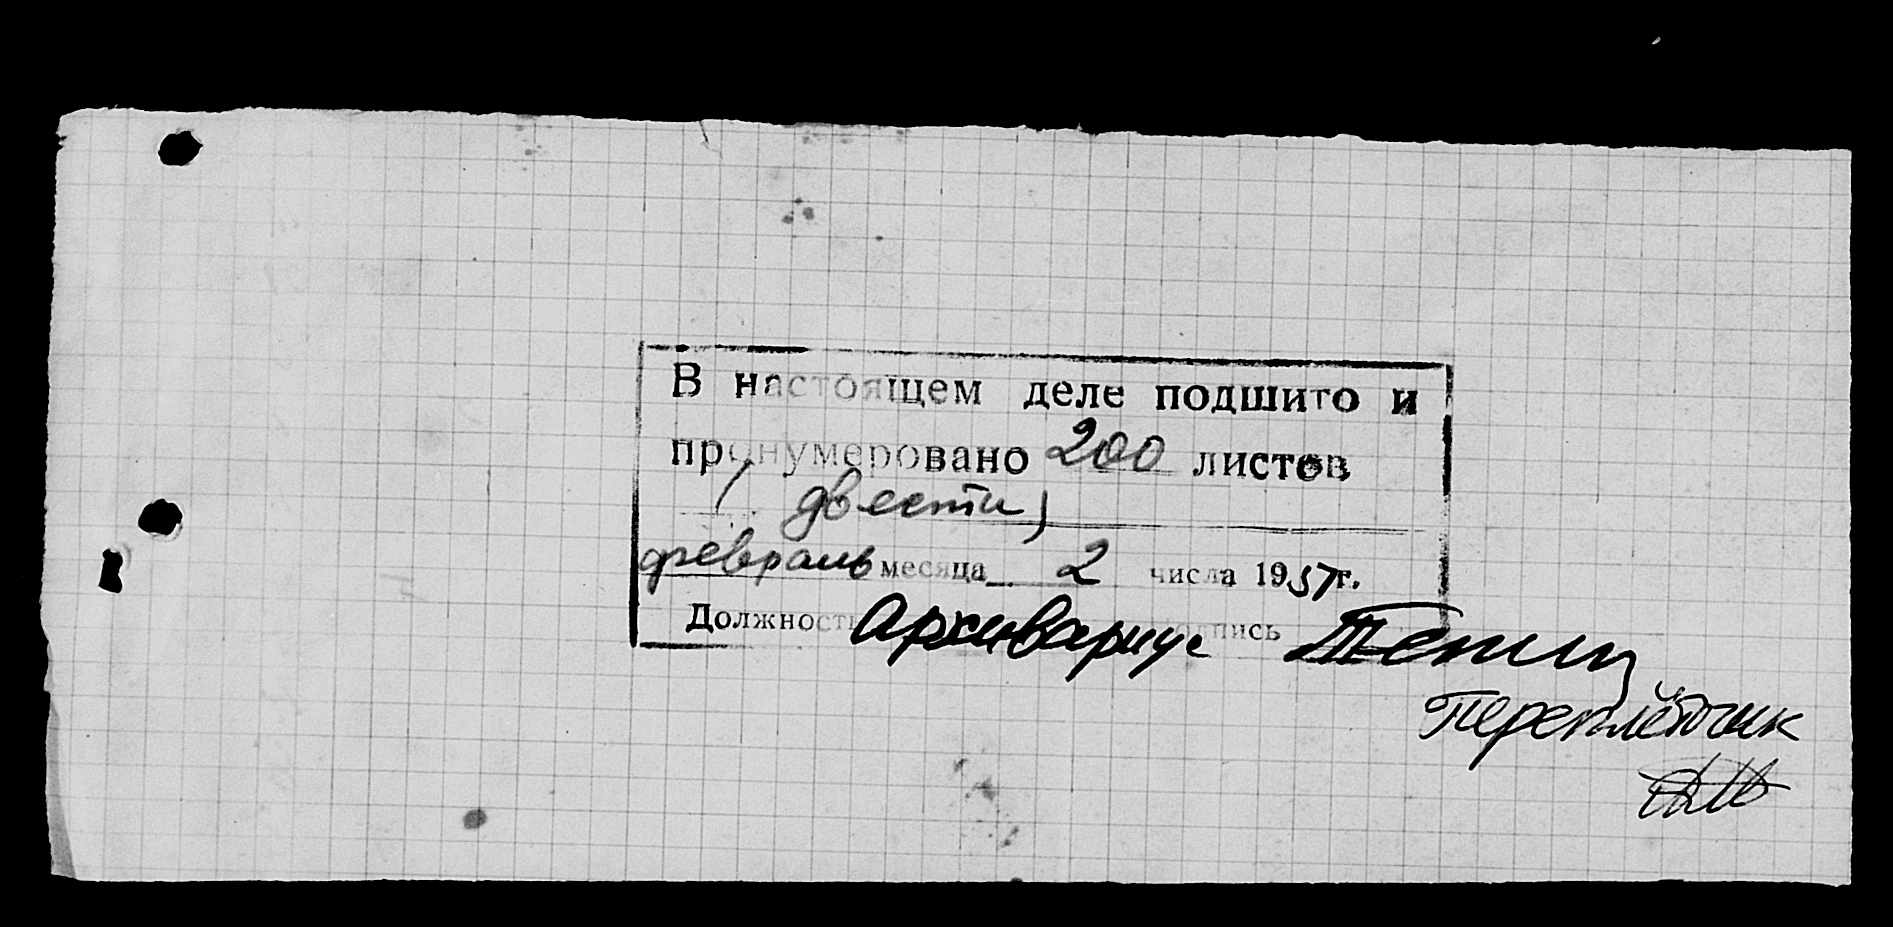 В настоящем деле подшито и
пронумеровано 200 листов
(двести)
февраль месяца 2 числа 1957г.
Должность Архивариус подпись
Переплётчик